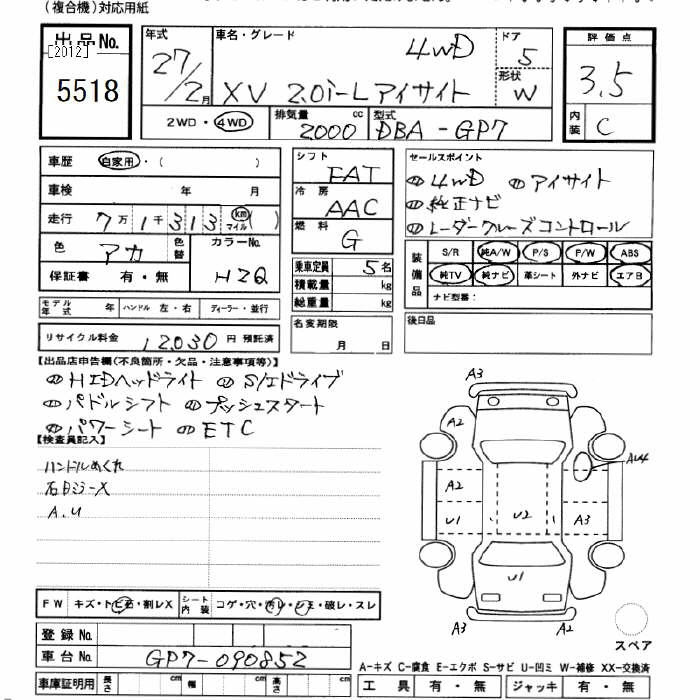 (複合機)対応用紙
出品No. [2012] 5518
年式 27/2月
車名・グレード XV 2.0i-L アイサイト 4WD
ドア 5
形状 W
評価点 3.5
内装 C
2WD・4WD
排気量 2000 cc
型式 DBA-GP7
車歴 自家用・( )
車検 年 月
走行 7万1千313 km マイル ( )
色 アカ 色替
カラーNo. HZQ
保証書 有・無
シフト FAT
冷房 AAC
燃料 G
乗車定員 5名
積載量 kg
総重量 kg
セールスポイント
4WD アイサイト
純正ナビ
レーダークルーズコントロール
装備品 S/R 純A/W P/S P/W ABS
純TV 純ナビ 革シート 外ナビ エアB
ナビ型番:
モデル年式 年 ハンドル 左・右 ディーラー・並行
リサイクル料金 12030 円 預託済
名変期限 月 日
後日品
【出品店申告欄(不良箇所・欠品・注意事項等)】
HIDヘッドライト S/Iドライブ
パドルシフト プッシュスタート
パワーシート ETC
【検査員記入】
ハンドルめくれ
A.U
A3
A2
AU4
A2
U1 U2 A3
U1
A3 A2
スペア
FW キズ・トビ石・割レX
シート内装 コゲ・穴・汚レ・シミ・破レ・スレ
登録No.
車台No. GP7-090852
車庫証明用 長さ cm 幅 cm 高さ cm
A-キズ C-腐食 E-エクボ S-サビ U-凹ミ W-補修 XX-交換済
工具 有・無 ジャッキ 有・無